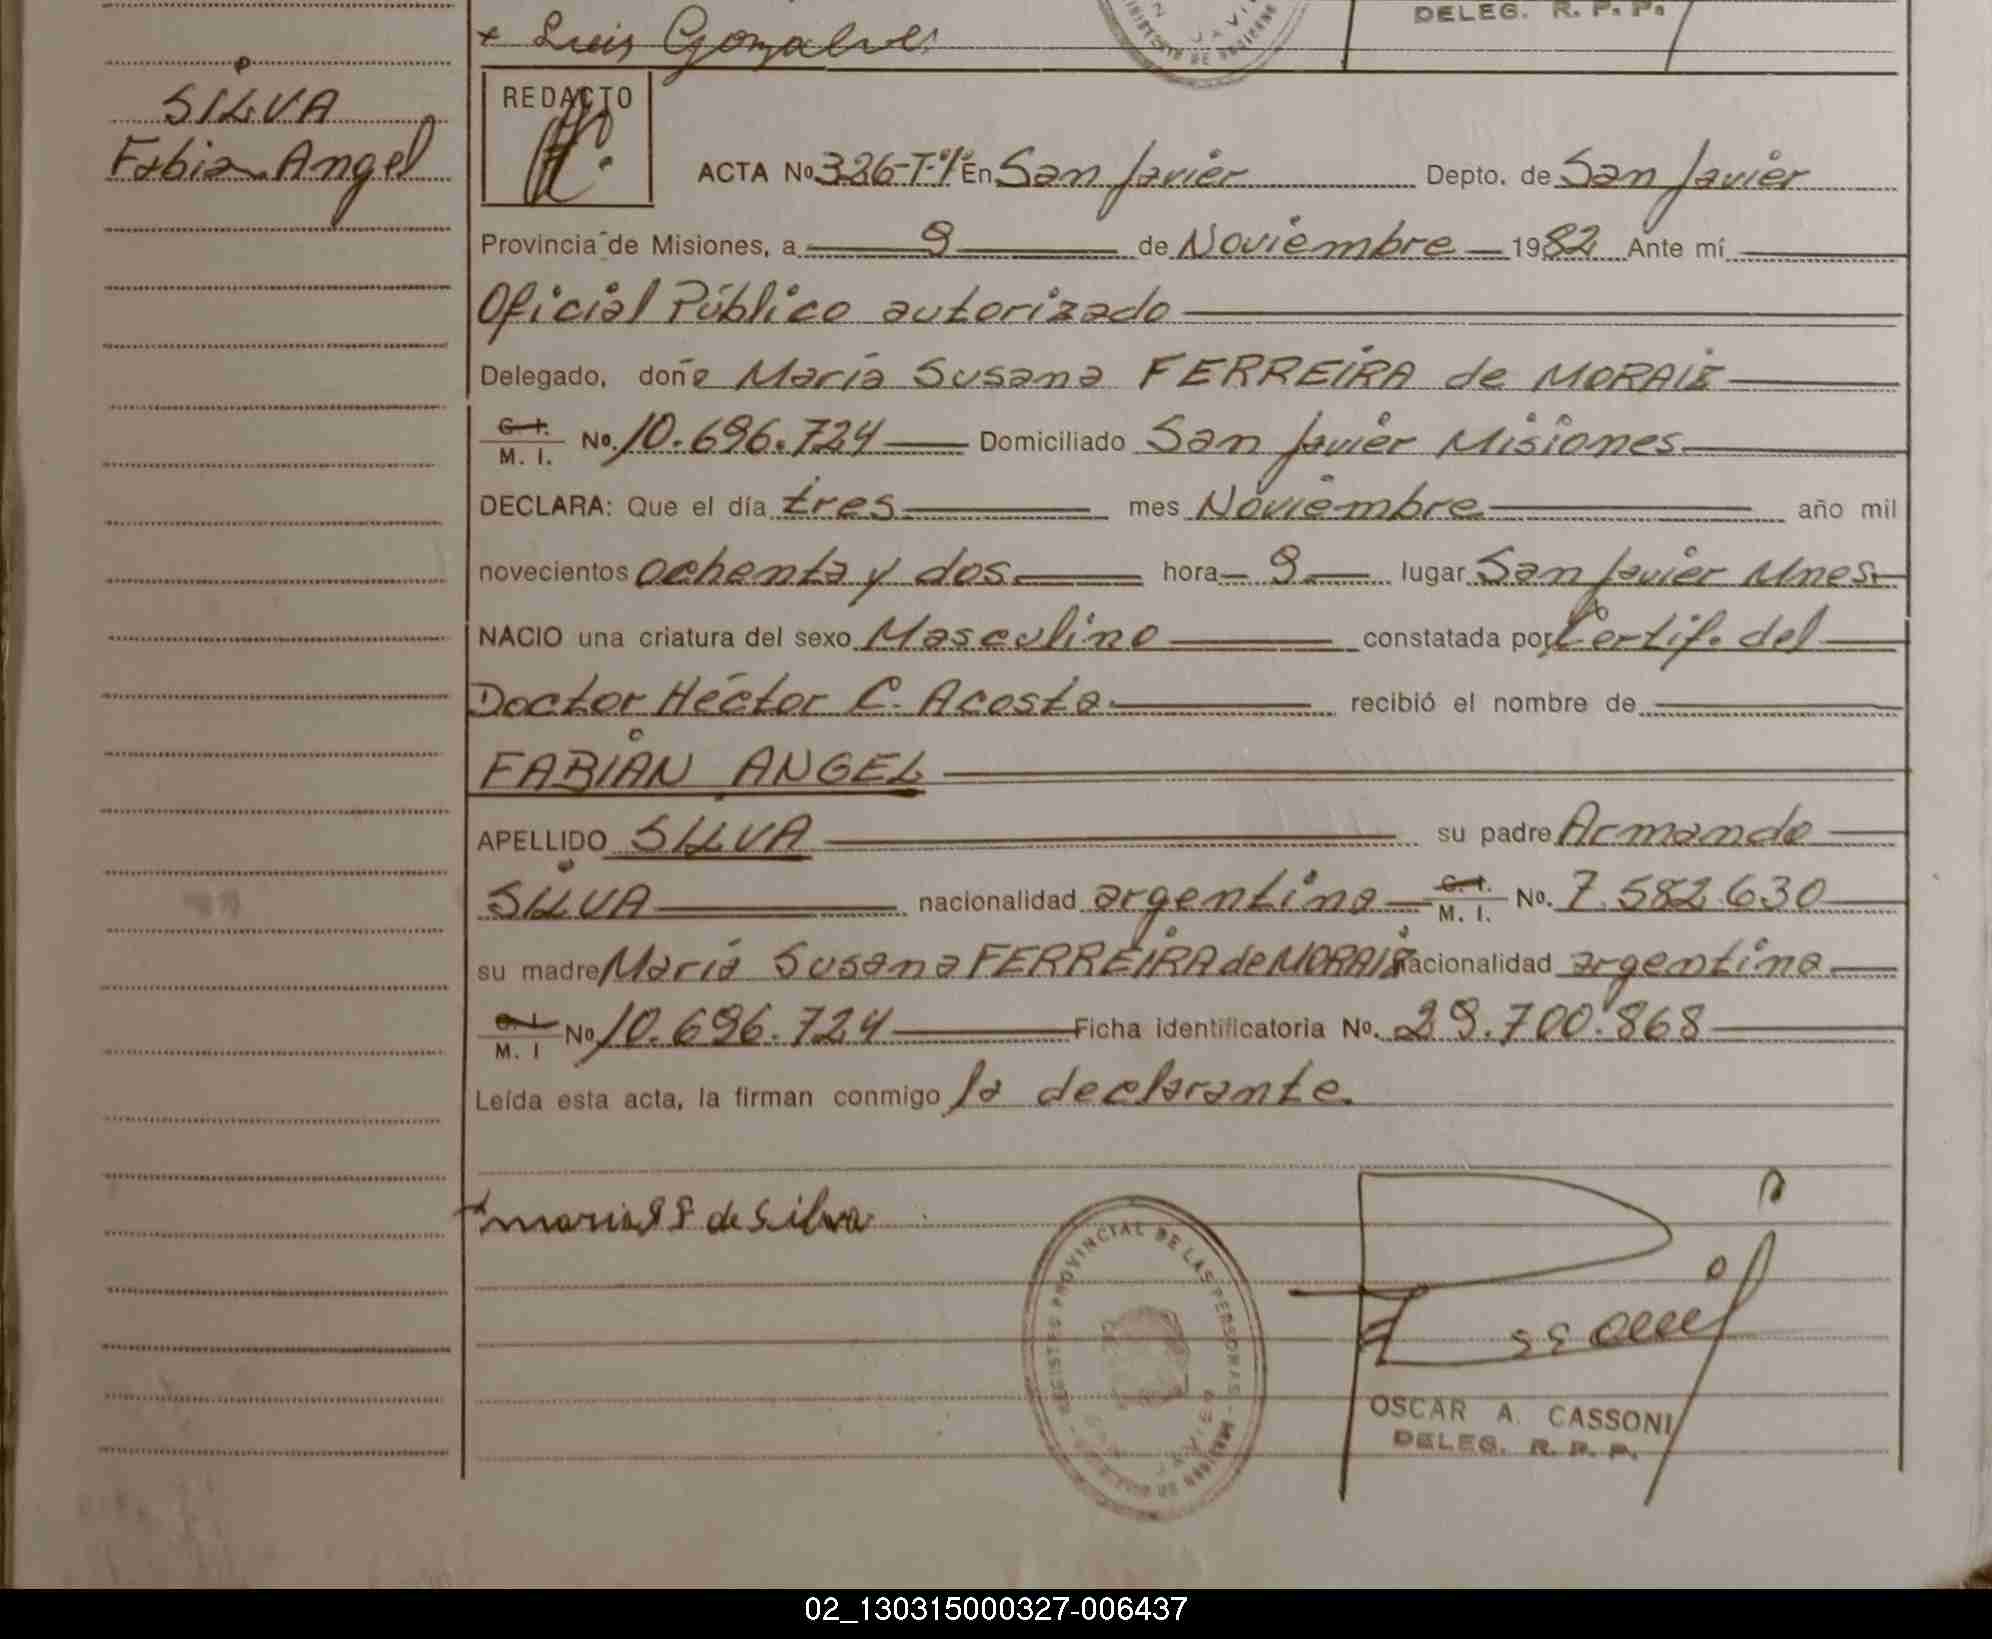 + Luis Gonzalve
DELEG. R. P. P.
SILVA
Fabian Angel
REDACTO
ACTA No 326-T-1° En San Javier Depto. de San Javier
Provincia de Misiones, a 9 de Noviembre 1982 Ante mí
Oficial Público autorizado
Delegado, doña María Susana FERREIRA de MORAIZ
C. I. M. I. No. 10.696.724 Domiciliado San Javier Misiones
DECLARA: Que el día tres mes Noviembre año mil
novecientos ochenta y dos hora 9 lugar San Javier Mnes
NACIO una criatura del sexo Masculino constatada por Certif. del
Doctor Héctor C. Acosta recibió el nombre de
FABIÁN ANGEL
APELLIDO SILVA su padre Armando
SILVA nacionalidad argentina C. I. M. I. No. 7.582.630
su madre María Susana FERREIRA de MORAIZ nacionalidad argentina
C. I. M. I No 10.696.724 Ficha identificatoria No. 29.700.868
Leída esta acta, la firman conmigo la declarante.
maria S F de Silva
REGISTRO PROVINCIAL DE LAS PERSONAS
OSCAR A. CASSONI
DELEG. R. P. P.
02_130315000327-006437